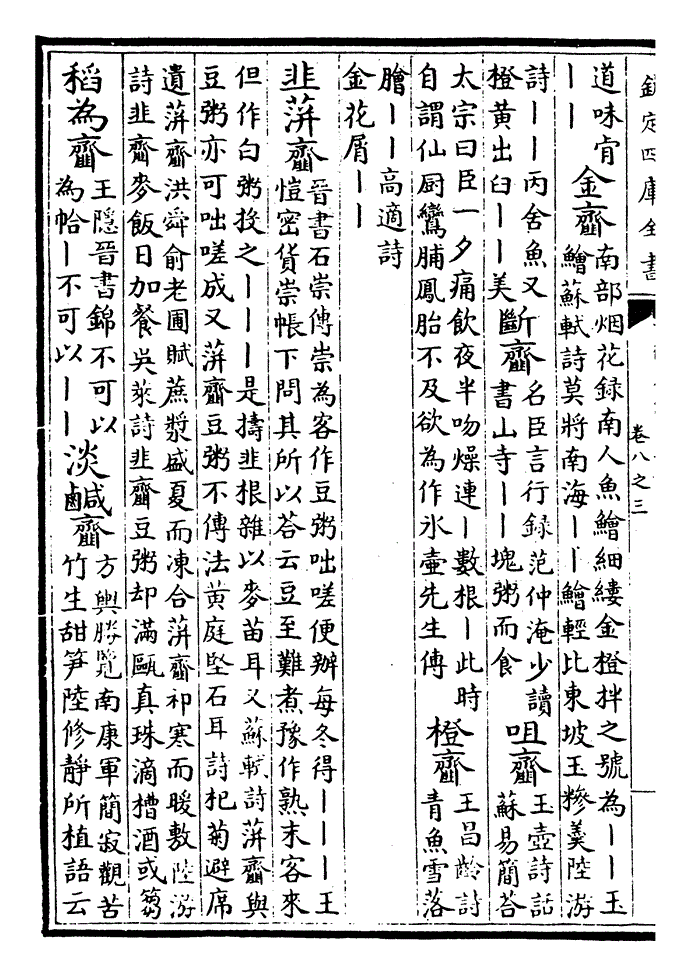 欽定四庫全書
卷八之三
道味肯
——
金齏
南部烟花録南人魚鱠細縷金橙拌之號為——玉
鱠蘇軾詩莫將南海——鱠輕比東坡玉糝羮陸游
詩——丙舍魚又
橙黄出臼——美
斷齏
名臣言行録范仲淹少讀
書山寺——塊粥而食
咀齏
玉壺詩話
蘇易簡荅
太宗曰臣一夕痛飲夜半吻燥連—數根—此時
自謂仙厨鸞脯鳳胎不及欲為作氷壺先生傳
橙齏
王昌齡詩
青魚雪落
膾——高適詩
金花屑——
韭蓱齏
晉書石崇傳崇為客作豆粥咄嗟便辦每冬得———王
愷密貨崇帳下問其所以荅云豆至難煮豫作熟末客來
但作白粥投之———是擣韭根雜以麥苗耳又蘇軾詩蓱齏與
豆粥亦可咄嗟成又蓱齏豆粥不傳法黄庭堅石耳詩杞菊避席
遺蓱齏洪舜俞老圃賦蔗漿盛夏而凍合蓱齏祁寒而暖敷陸游
詩韭齏麥飯日加餐吳萊詩韭齏豆粥却滿甌真珠滴槽酒或篘
稻為齏
王隱晉書錦不可以
為帢—不可以——
淡鹹齏
方輿勝覽南康軍簡寂觀苦
竹生甜笋陸修静所植語云